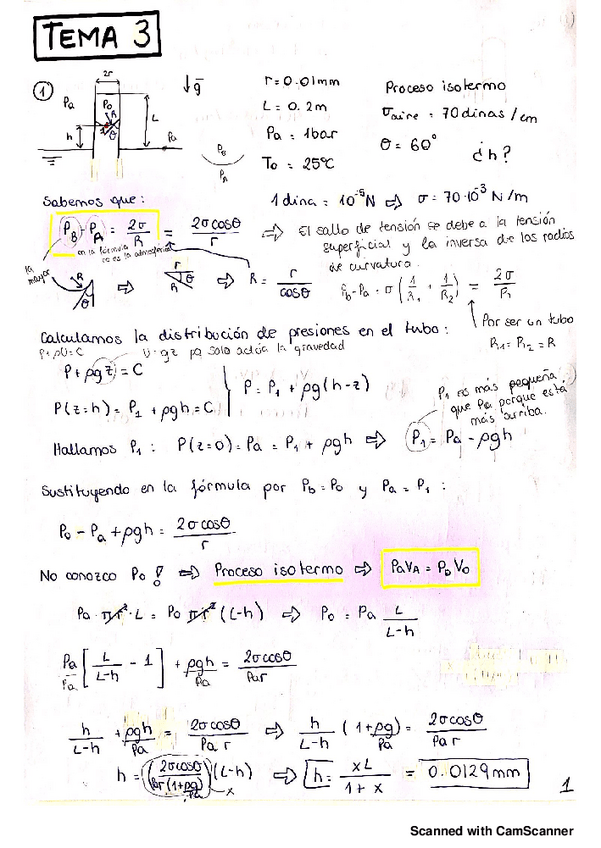 TEMA 3
1
2r
↓g
Pa
P0
R
θ
L
h
Pa
PB
PA
r = 0.01mm
L = 0.2m
Pa = 1bar
T0 = 25ºC
Proceso isotermo
σaire = 70 dinas/cm
θ = 60º
¿h?
Sabemos que:
1 dina = 10⁻⁵N ⇒ σ = 70·10⁻³ N/m
PB - PA = 2σ/R = 2σcosθ/r ⇒ El salto de tensión se debe a la tensión
superficial y la inversa de los radios
de curvatura.
en la fórmula
no es la atmosférica
la mayor
R
θ
⇒
r
R
θ
⇒ R = r/cosθ
Pb - Pa = σ(1/R1 + 1/R2) = 2σ/R1
Por ser un tubo
R1 = R2 = R
Calculamos la distribución de presiones en el tubo:
P+ρU=C
U=gz pq solo actúa la gravedad
P + ρgz = C
P = P1 + ρg(h-z)
P(z=h) = P1 + ρgh = C
P1 es más pequeña
que Pa porque está
más arriba.
Hallamos P1: P(z=0) = Pa = P1 + ρgh ⇒ P1 = Pa - ρgh
Sustituyendo en la fórmula por Pb = P0 y Pa = P1:
P0 - Pa + ρgh = 2σcosθ/r
No conozco P0! ⇒ Proceso isotermo ⇒ PaVA = P0V0
Pa·πr²·L = P0 πr²(L-h) ⇒ P0 = Pa L/(L-h)
Pa/Pa [L/(L-h) - 1] + ρgh/Pa = 2σcosθ/Par
h/(L-h) + ρgh/Pa = 2σcosθ/Par ⇒ h/(L-h) (1+ρg/Pa) = 2σcosθ/Par
h = (2σcosθ/Par(1+ρg/Pa))(L-h) ⇒ h = xL/(1+x) = 0.0129mm
x
1
Scanned with CamScanner